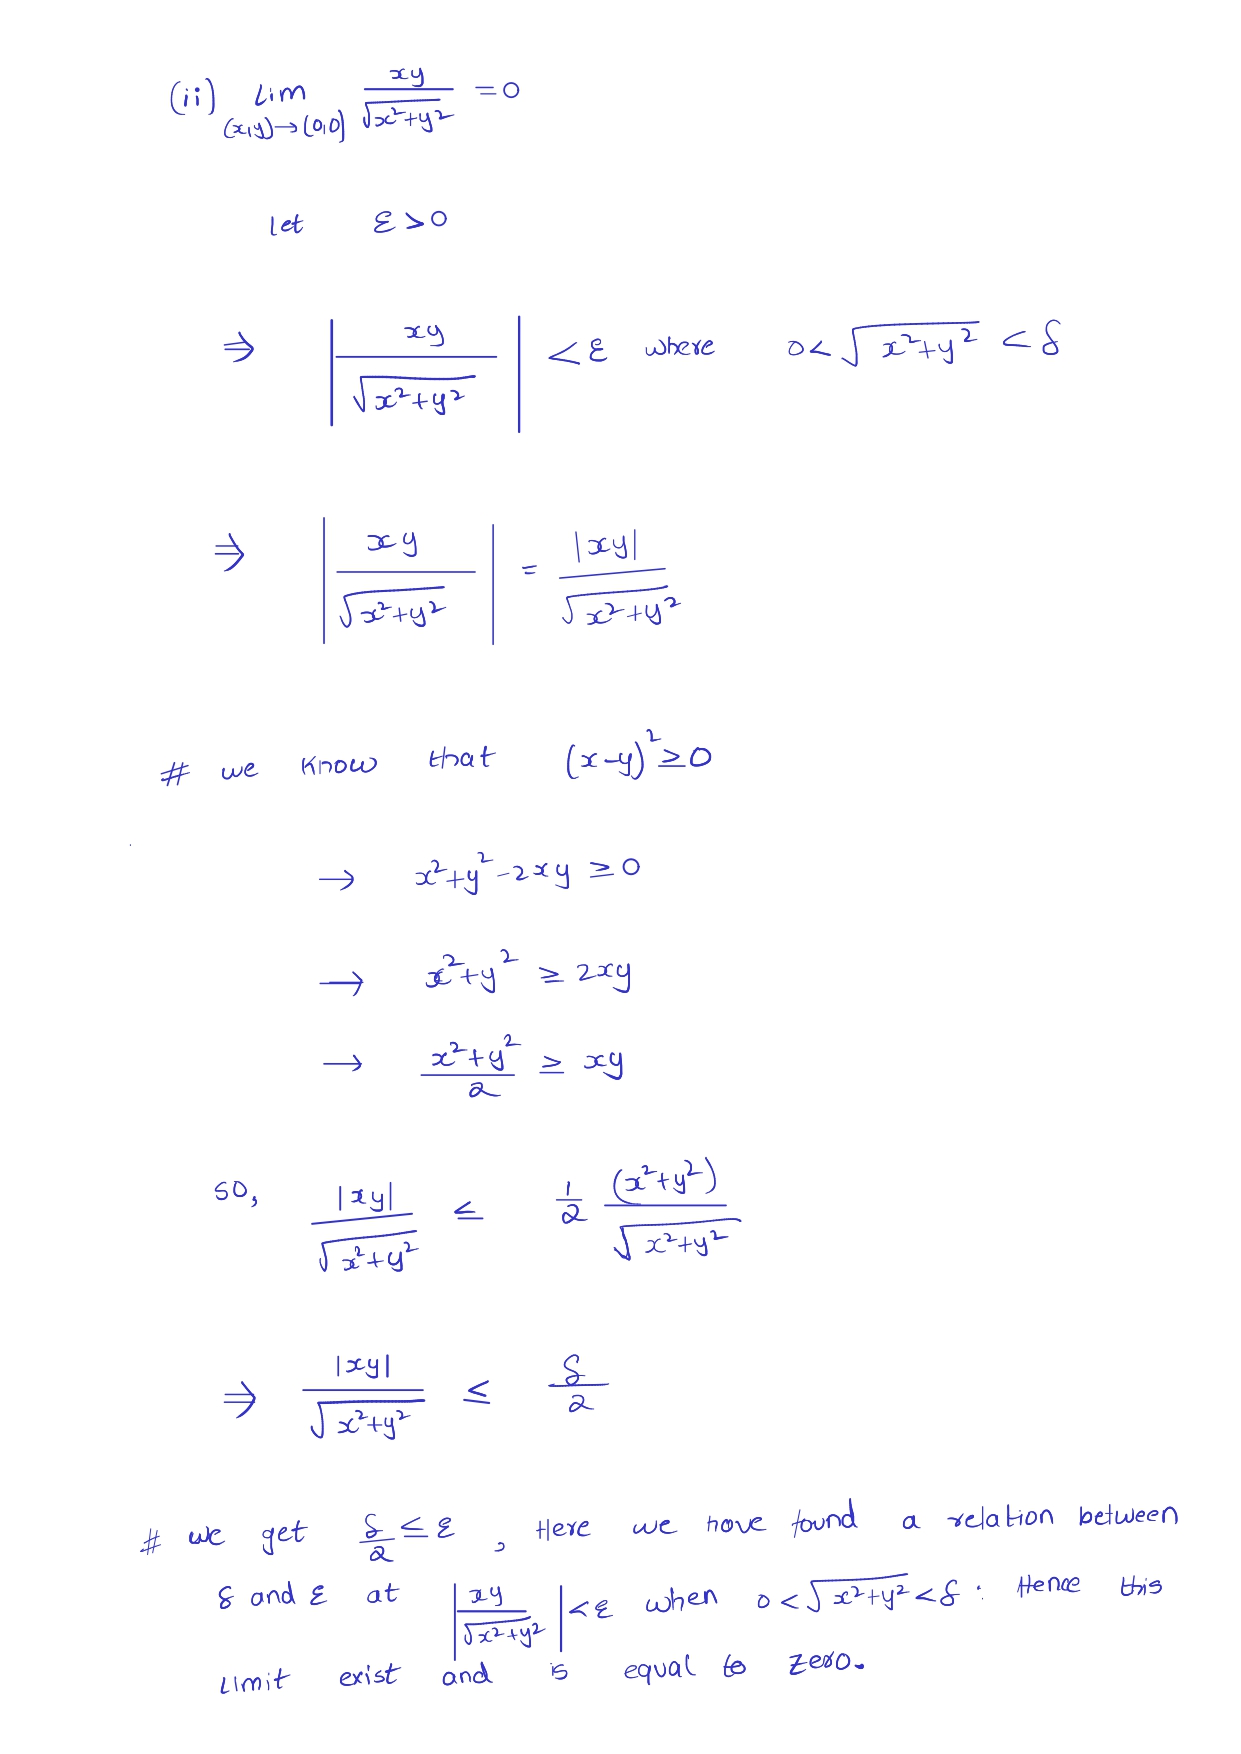 (ii) Lim xy/√x²+y² = 0
(x,y)→(0,0]
let ε>0
⇒ |xy/√x²+y²| <ε where 0<√x²+y² <δ
⇒ |xy/√x²+y²| = |xy|/√x²+y²
# we know that (x-y)²≥0
→ x²+y²-2xy ≥0
→ x²+y² ≥ 2xy
→ x²+y²/2 ≥ xy
so, |xy|/√x²+y² ≤ 1/2 (x²+y²)/√x²+y²
⇒ |xy|/√x²+y² ≤ δ/2
# we get δ/2 ≤ε , Here we have found a relation between
δ and ε at |xy/√x²+y²| <ε when 0<√x²+y² <δ. Hence this
Limit exist and is equal to zero.